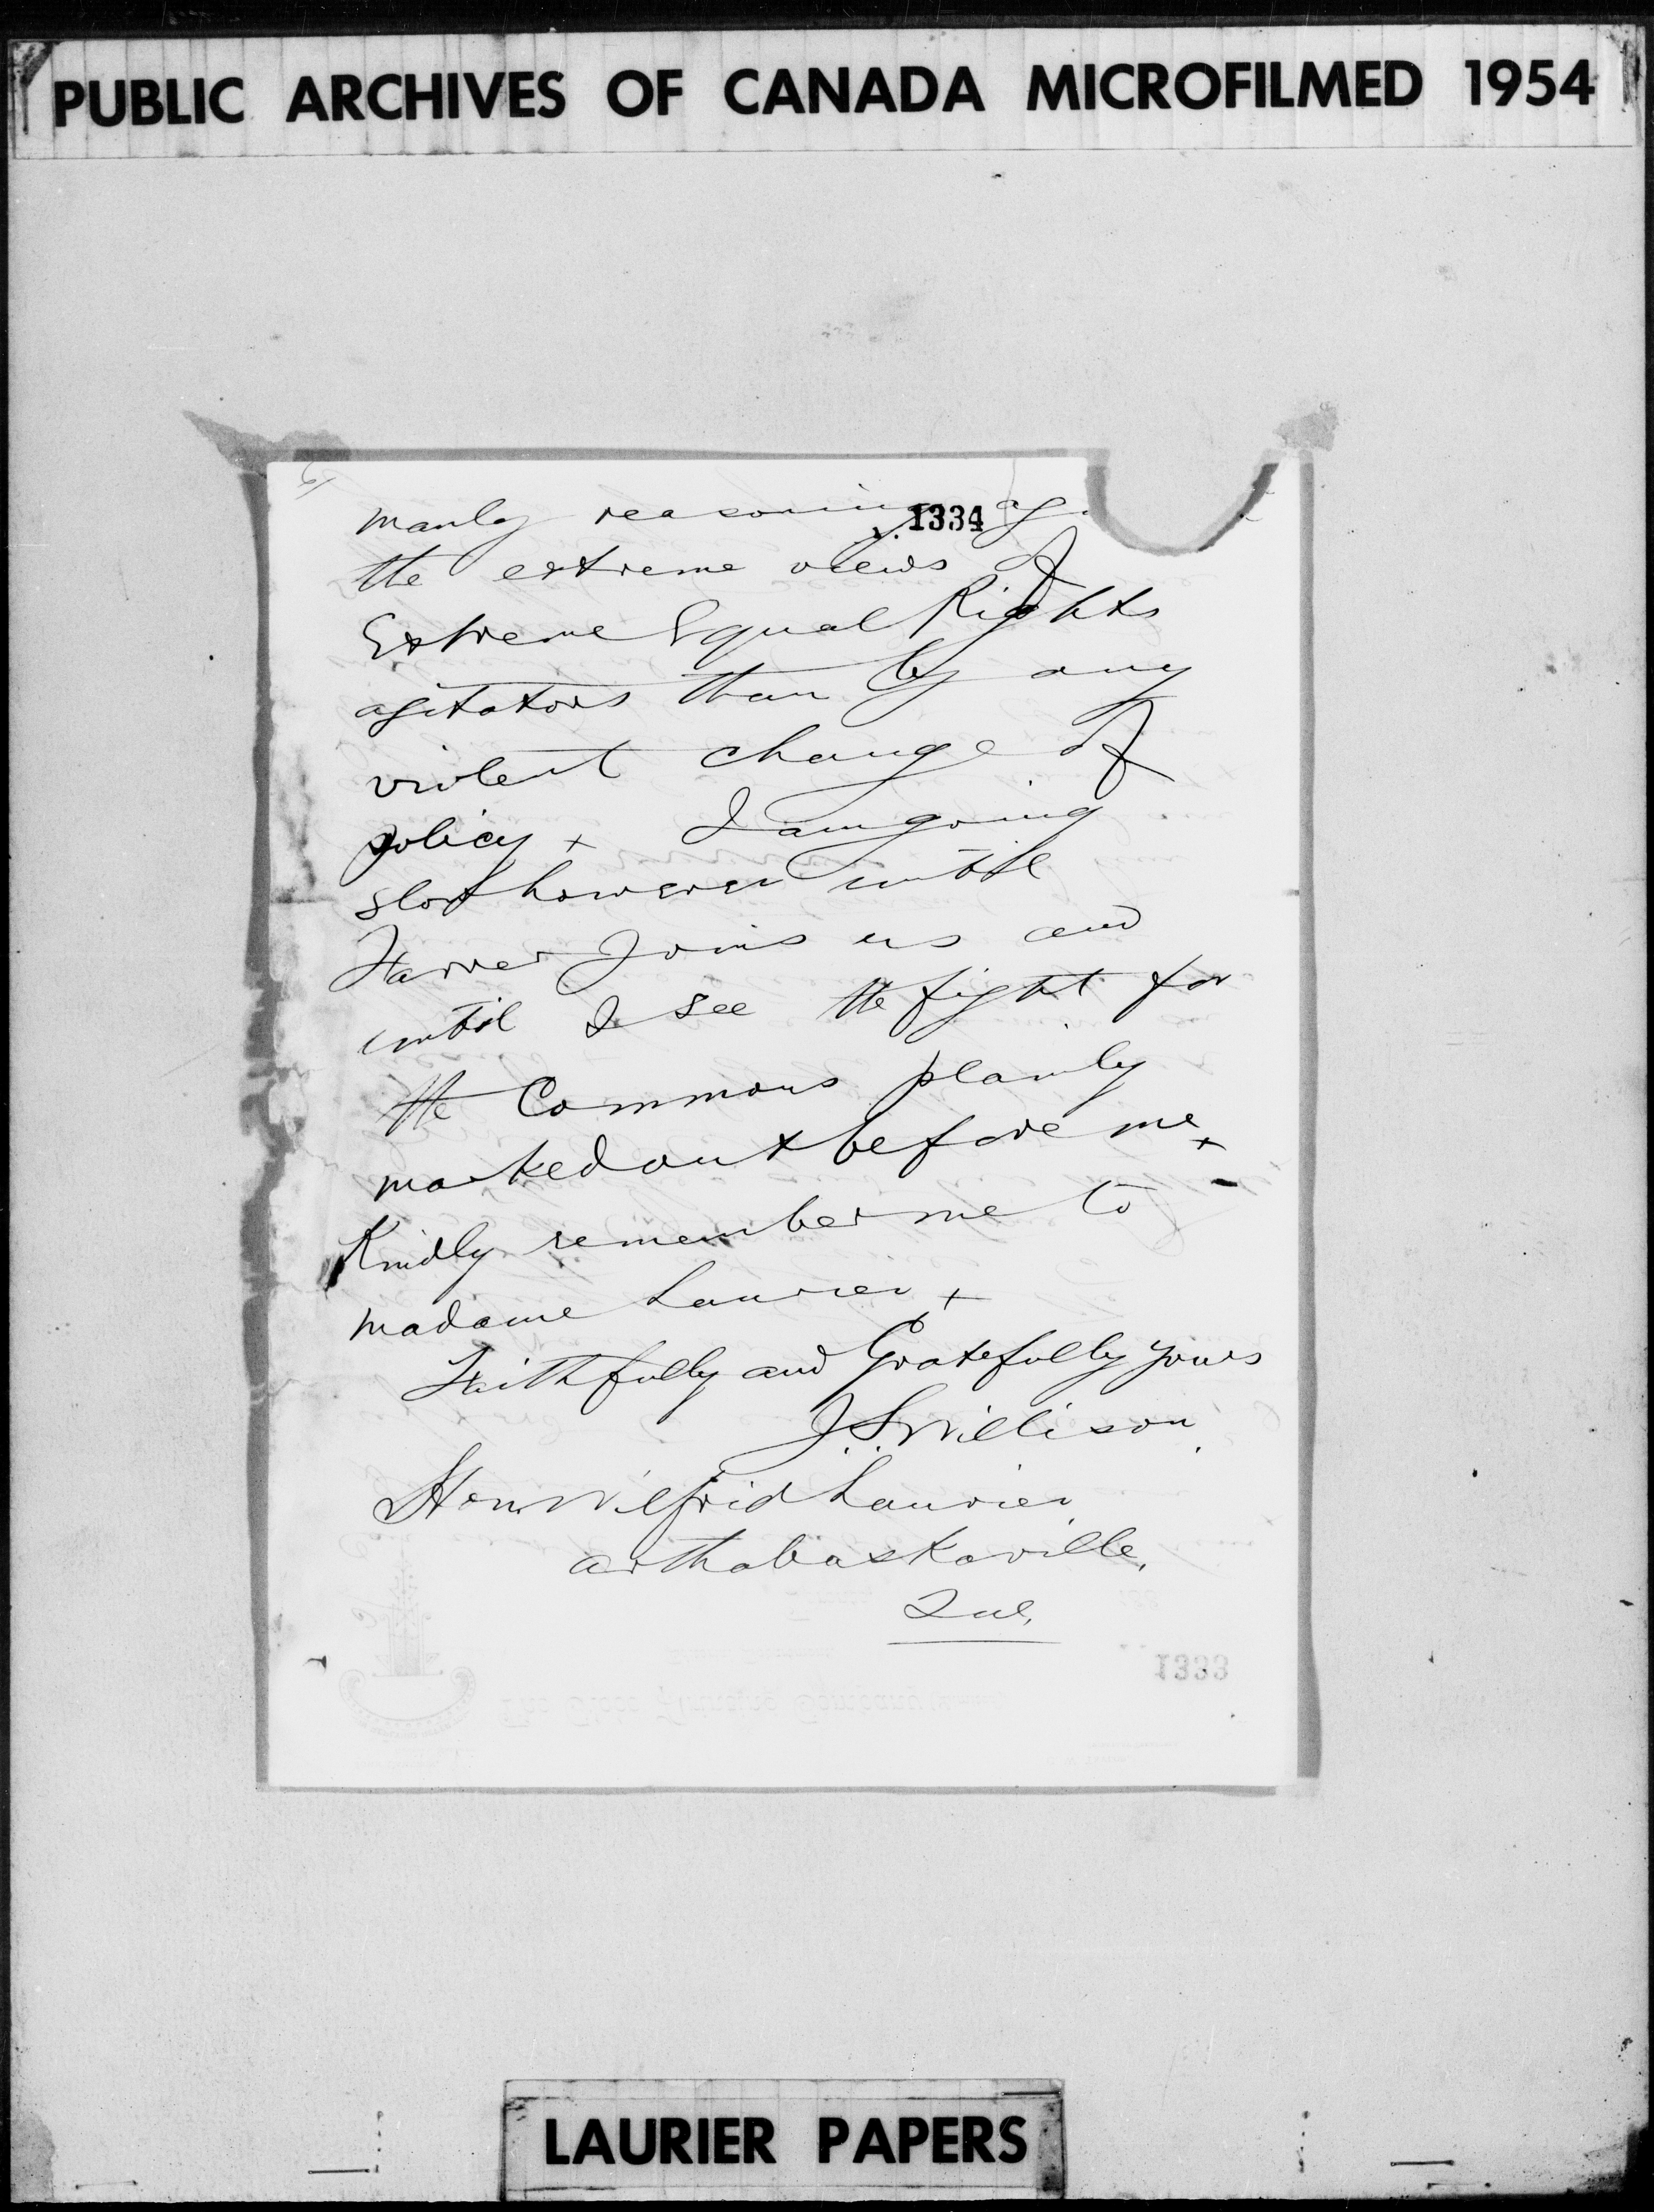 PUBLIC ARCHIVES OF CANADA MICROFILMED 1954
6/
manly reasoning ag
1334
the extreme views of
Extreme Equal Rights
agitators than by any
violent change of
policy x I am going
slow however until
Farrer Joins us and
until I see the fight for
the Commons plainly
marked out before me x
Kindly remember me to
madame Laurier x
Faithfully and Gratefully yours
J.S. Willison
Hon. Wilfrid Laurier
arthabaskaville.
Que.
1333
LAURIER PAPERS